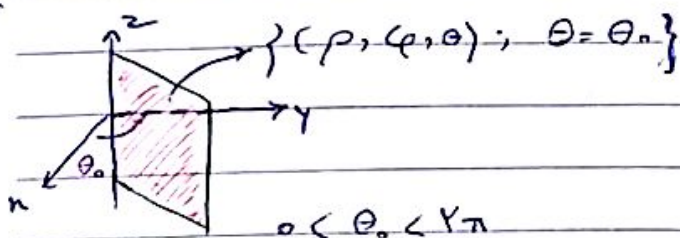 z
{(ρ, φ, θ) ; θ = θ₀}
y
θ₀
x
0 < θ₀ < ۲π